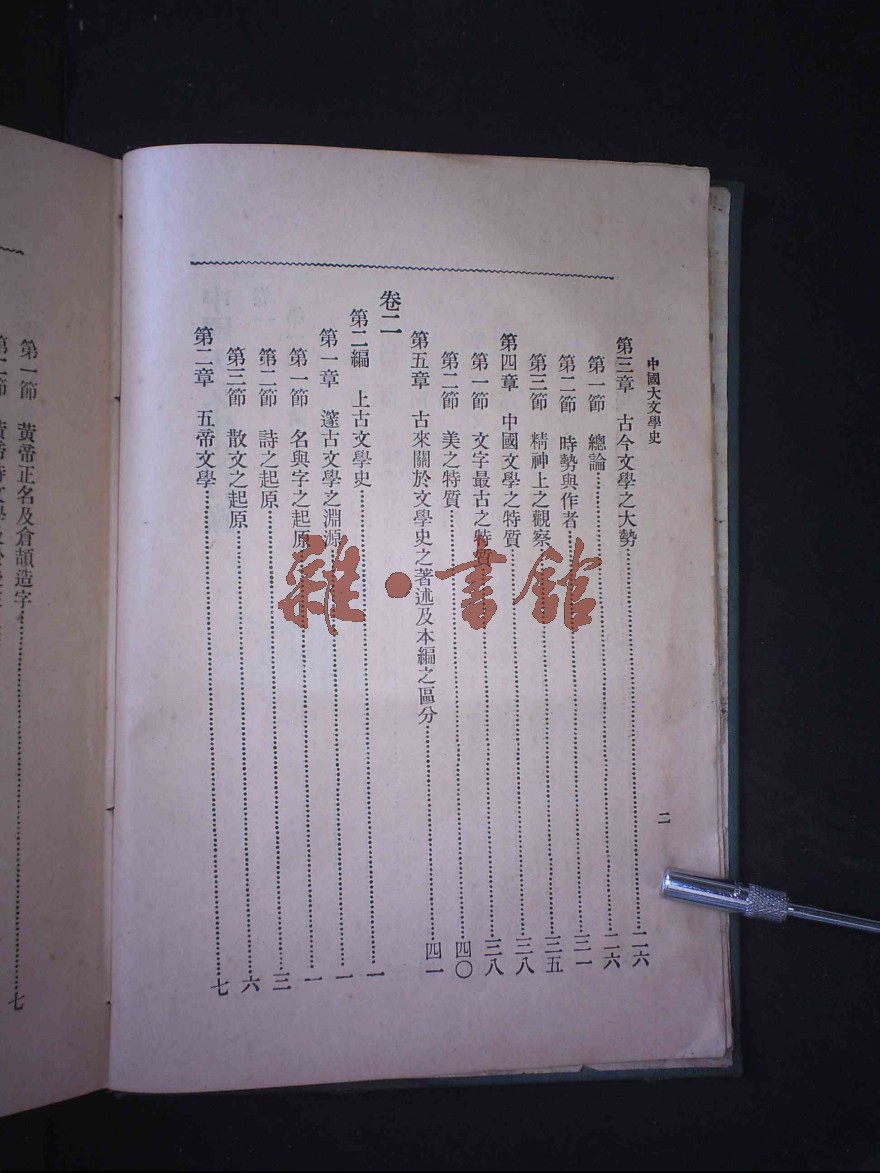 中國大文學史
二
第三章 古今文學之大勢 二六
第一節 總論 二六
第二節 時勢與作者 三一
第三節 精神上之觀察 三五
第四章 中國文學之特質 三八
第一節 文字最古之特質 三八
第二節 美之特質 四〇
第五章 古來關於文學史之著述及本編之區分 四一
卷二
第二編 上古文學史 一
第一章 邃古文學之淵源 一
第一節 名與字之起原 一
第二節 詩之起原 三
第三節 散文之起原 六
第二章 五帝文學 七
第一節 黃帝正名及倉頡造字 七
第二節
雜·書館